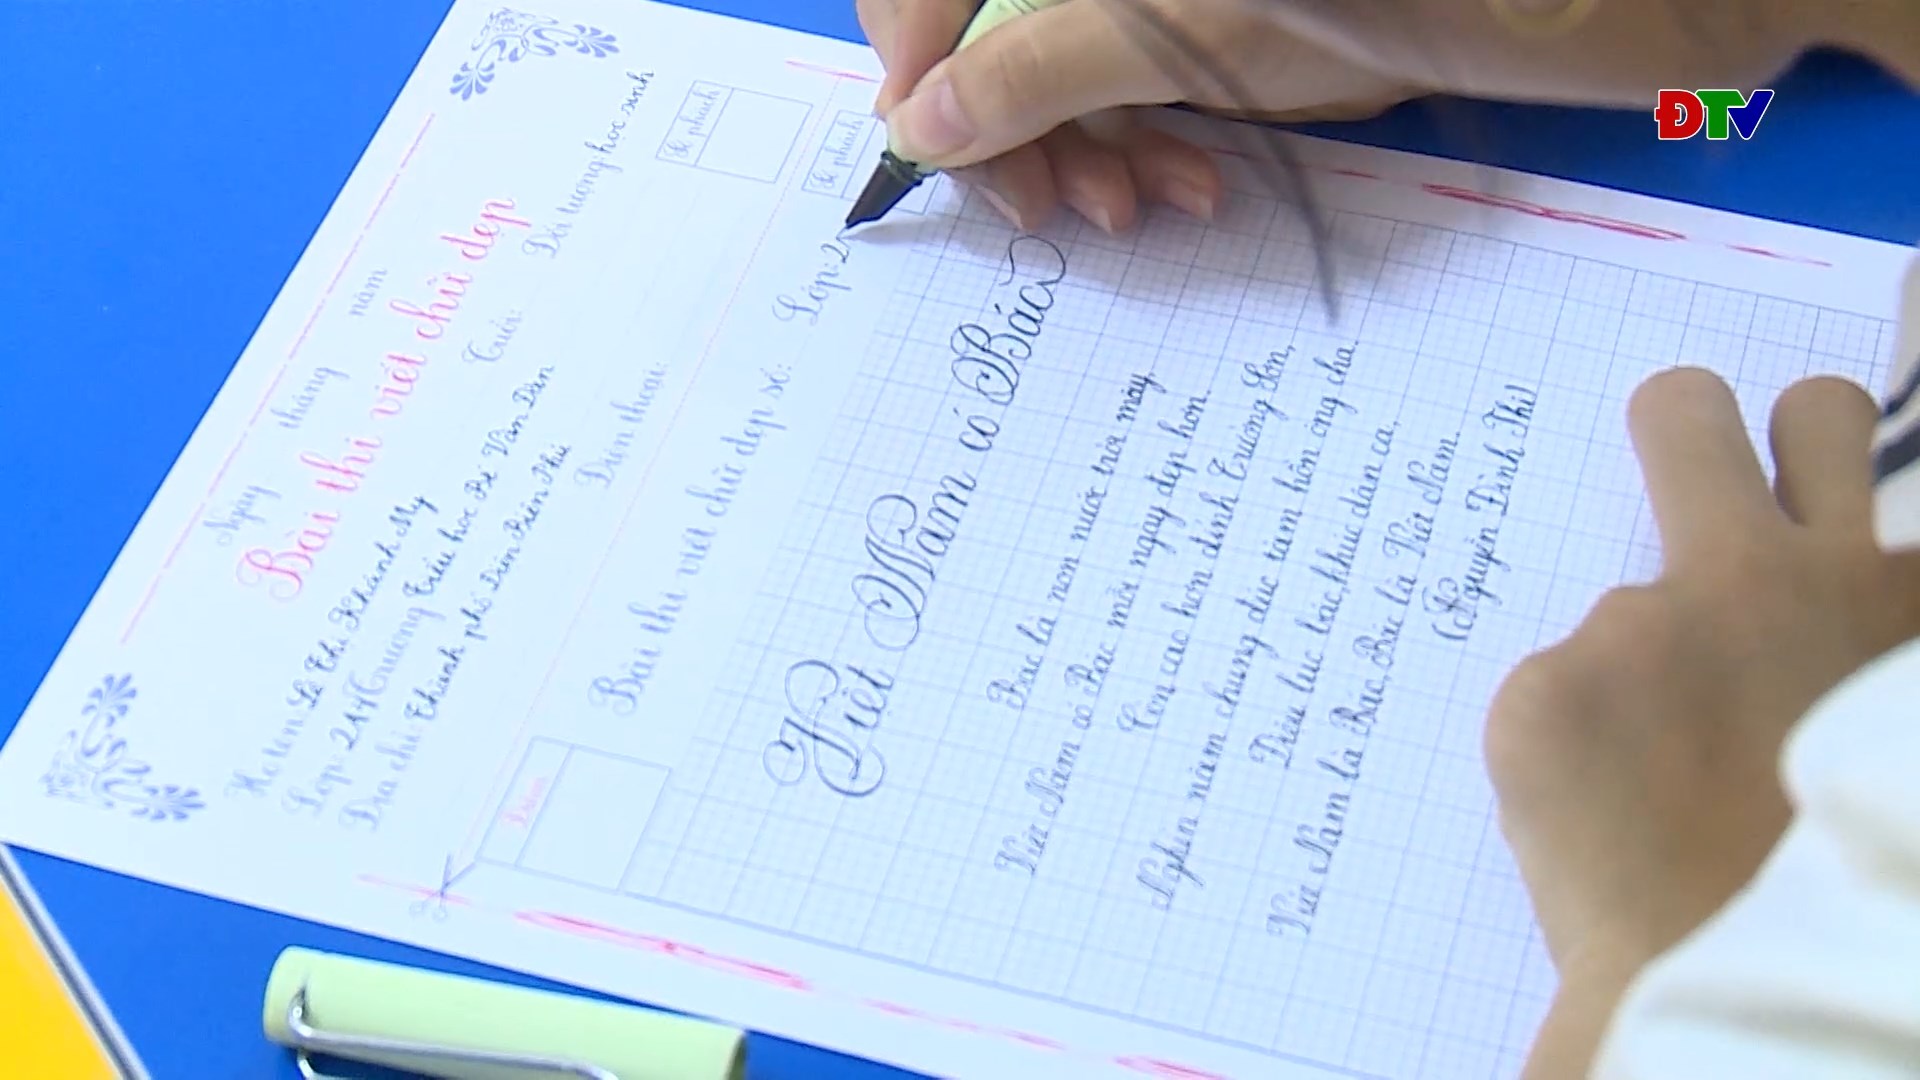 ĐTV
Ngày tháng năm
Bài thi viết chữ đẹp
Họ tên Lê Thị Khánh My Tuổi: Đối tượng: học sinh
Lớp: 2A4 Trường Tiểu học Bế Văn Đàn
Địa chỉ Thành phố Điện Biên Phủ Điện thoại:
Số phách
Số phách
Điểm
Bài thi viết chữ đẹp số: Lớp: 2
Việt Nam có Bác
Bác là non nước trời mây,
Việt Nam có Bác mỗi ngày đẹp hơn.
Còn cao hơn đỉnh Trường Sơn,
Nghìn năm chung đúc tâm hồn ông cha.
Điệu lục bát, khúc dân ca,
Việt Nam là Bác, Bác là Việt Nam.
(Nguyễn Đình Thi)